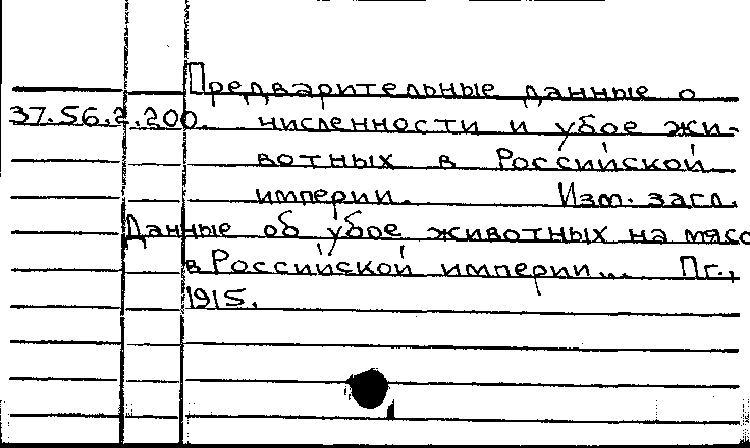 Предварительные данные о
37.56.2.200. численности и убое жи-
вотных в Российской
империи. Изм. загл.
Данные об убое животных на мясо
в Российской империи... Пг.,
1915.